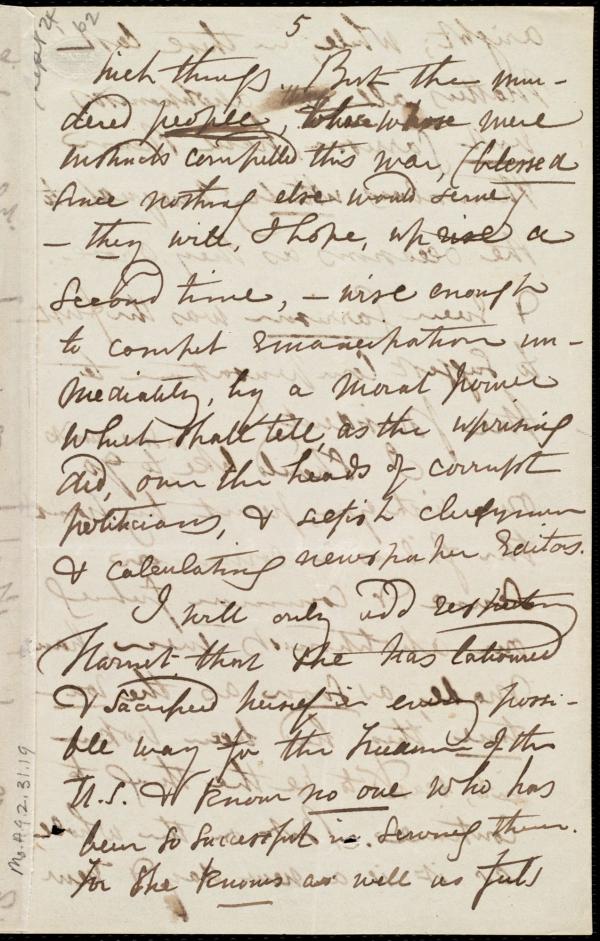 5
Sept 24
/62
such things. But the mur-
dered people, those whose mere
instincts compelled this war, (blessed
since nothing else would serve)
— they will, I hope, uprise a
second time, — wise enough
to compel Emancipation im-
mediately, by a moral power
which shall tell, as the uprising
did, over the heads of corrupt
politicians, & selfish clergymen
& calculating newspaper Editors.
I will only add respecting
Harriet that she has laboured
& sacrificed herself in every possi-
ble way for the freedom of the
U.S. & I know no one who has
been so successful in serving them.
for she knows as well as feels
Ms.A.9.2.31.19